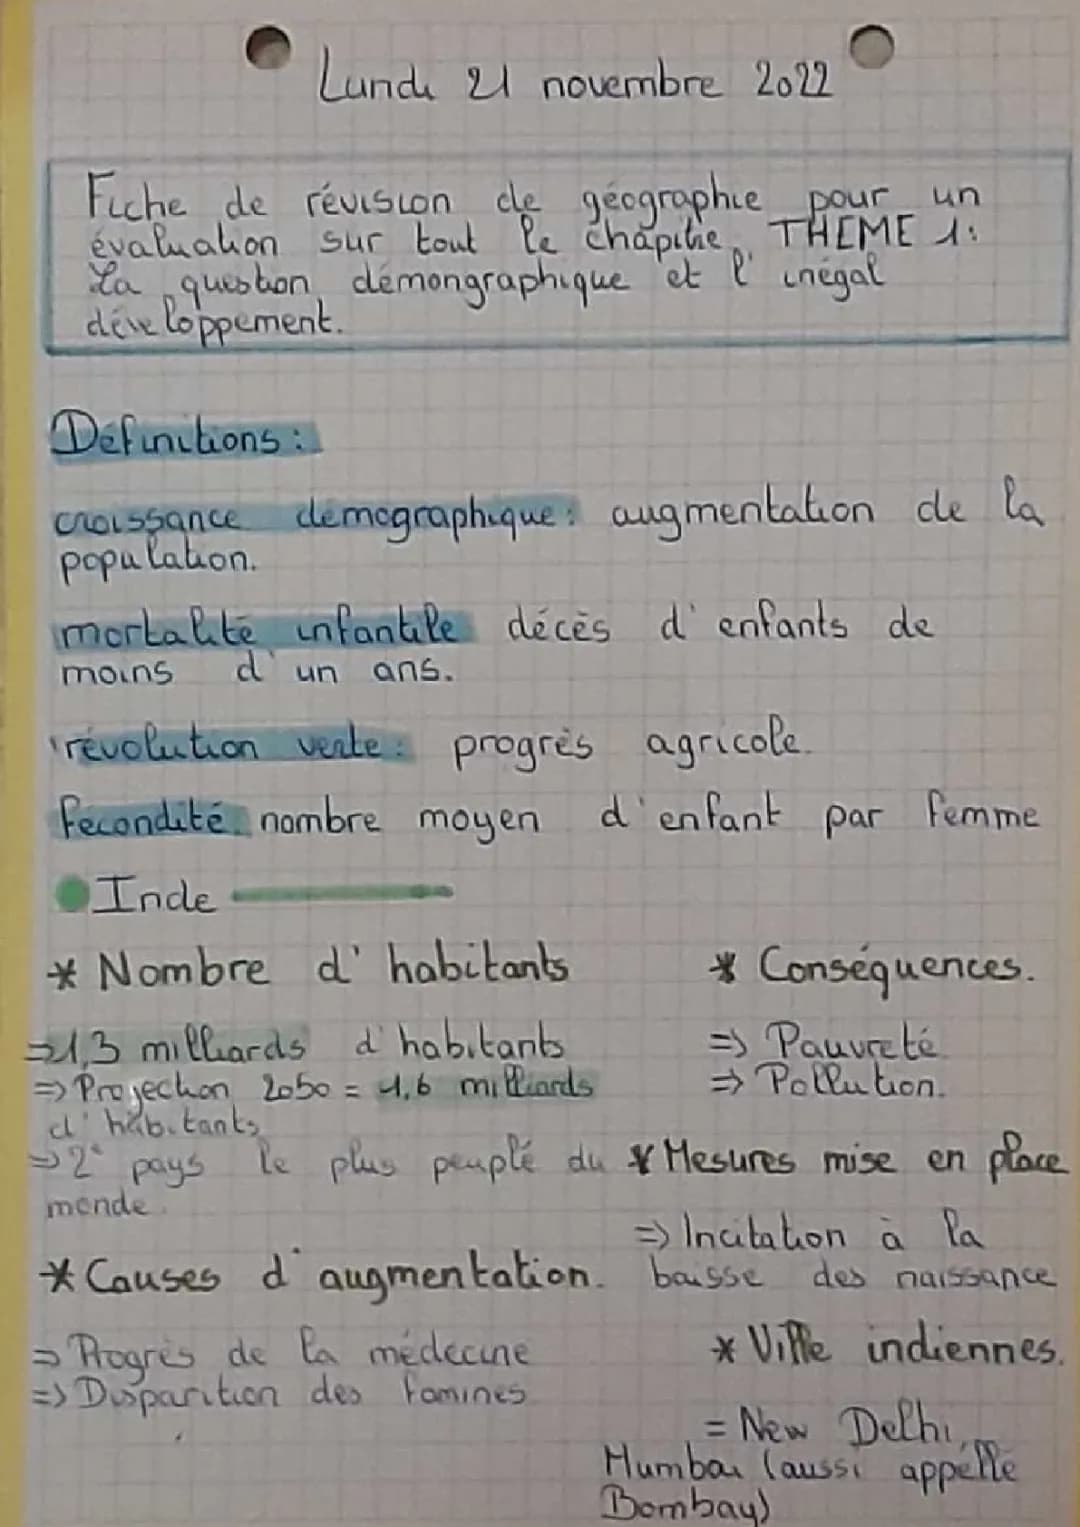 Lundi 21 novembre 2022
Fiche de révision de géographie pour un
évaluation sur tout le chapitre, THEME 1:
La question démongraphique et l'inégal
développement.
Définitions :
croissance démographique : augmentation de la
population.
mortalité infantile décès d'enfants de
moins d'un ans.
révolution verte : progrès agricole.
fécondité nombre moyen d'enfant par femme
Inde
* Nombre d'habitants
=> 1,3 milliards d'habitants
=> Projection 2050 = 1,6 milliards
d'habitants
=> 2° pays le plus peuplé du
monde.
* Causes d'augmentation.
=> Progrès de la médecine
=> Disparition des famines
* Conséquences.
=> Pauvreté
=> Pollution.
* Mesures mise en place
=> Incitation à la
baisse des naissance
* Ville indiennes.
= New Delhi,
Mumbai (aussi appellé
Bombay)